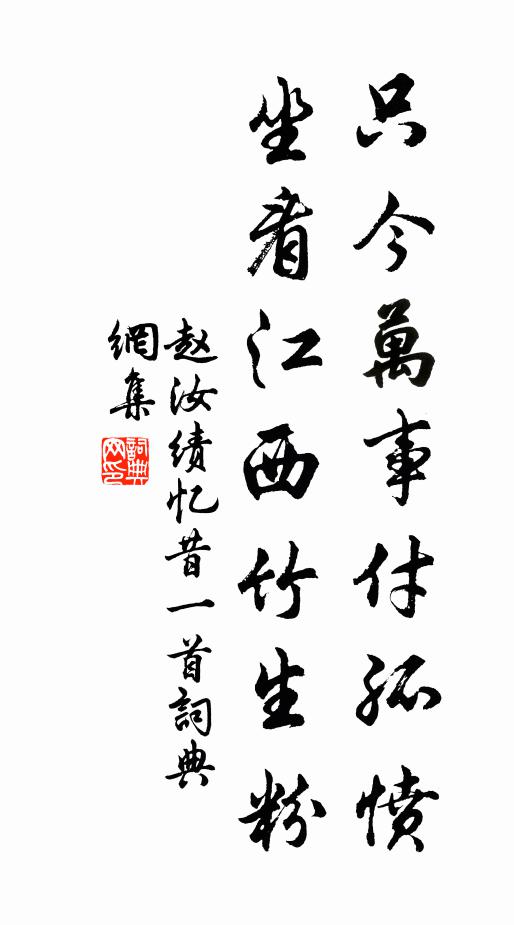 只今萬事付孤憤
坐看江西竹生粉
赵汝績忆昔一首詞典
網集
詞典
网印